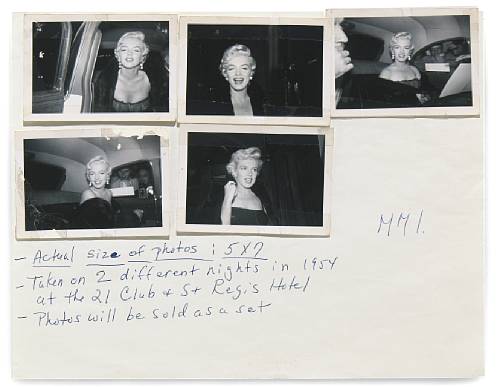 MM1.
- Actual size of photos: 5X7
- Taken on 2 different nights in 1954
at the 21 Club & St Regis Hotel
- Photos will be sold as a set